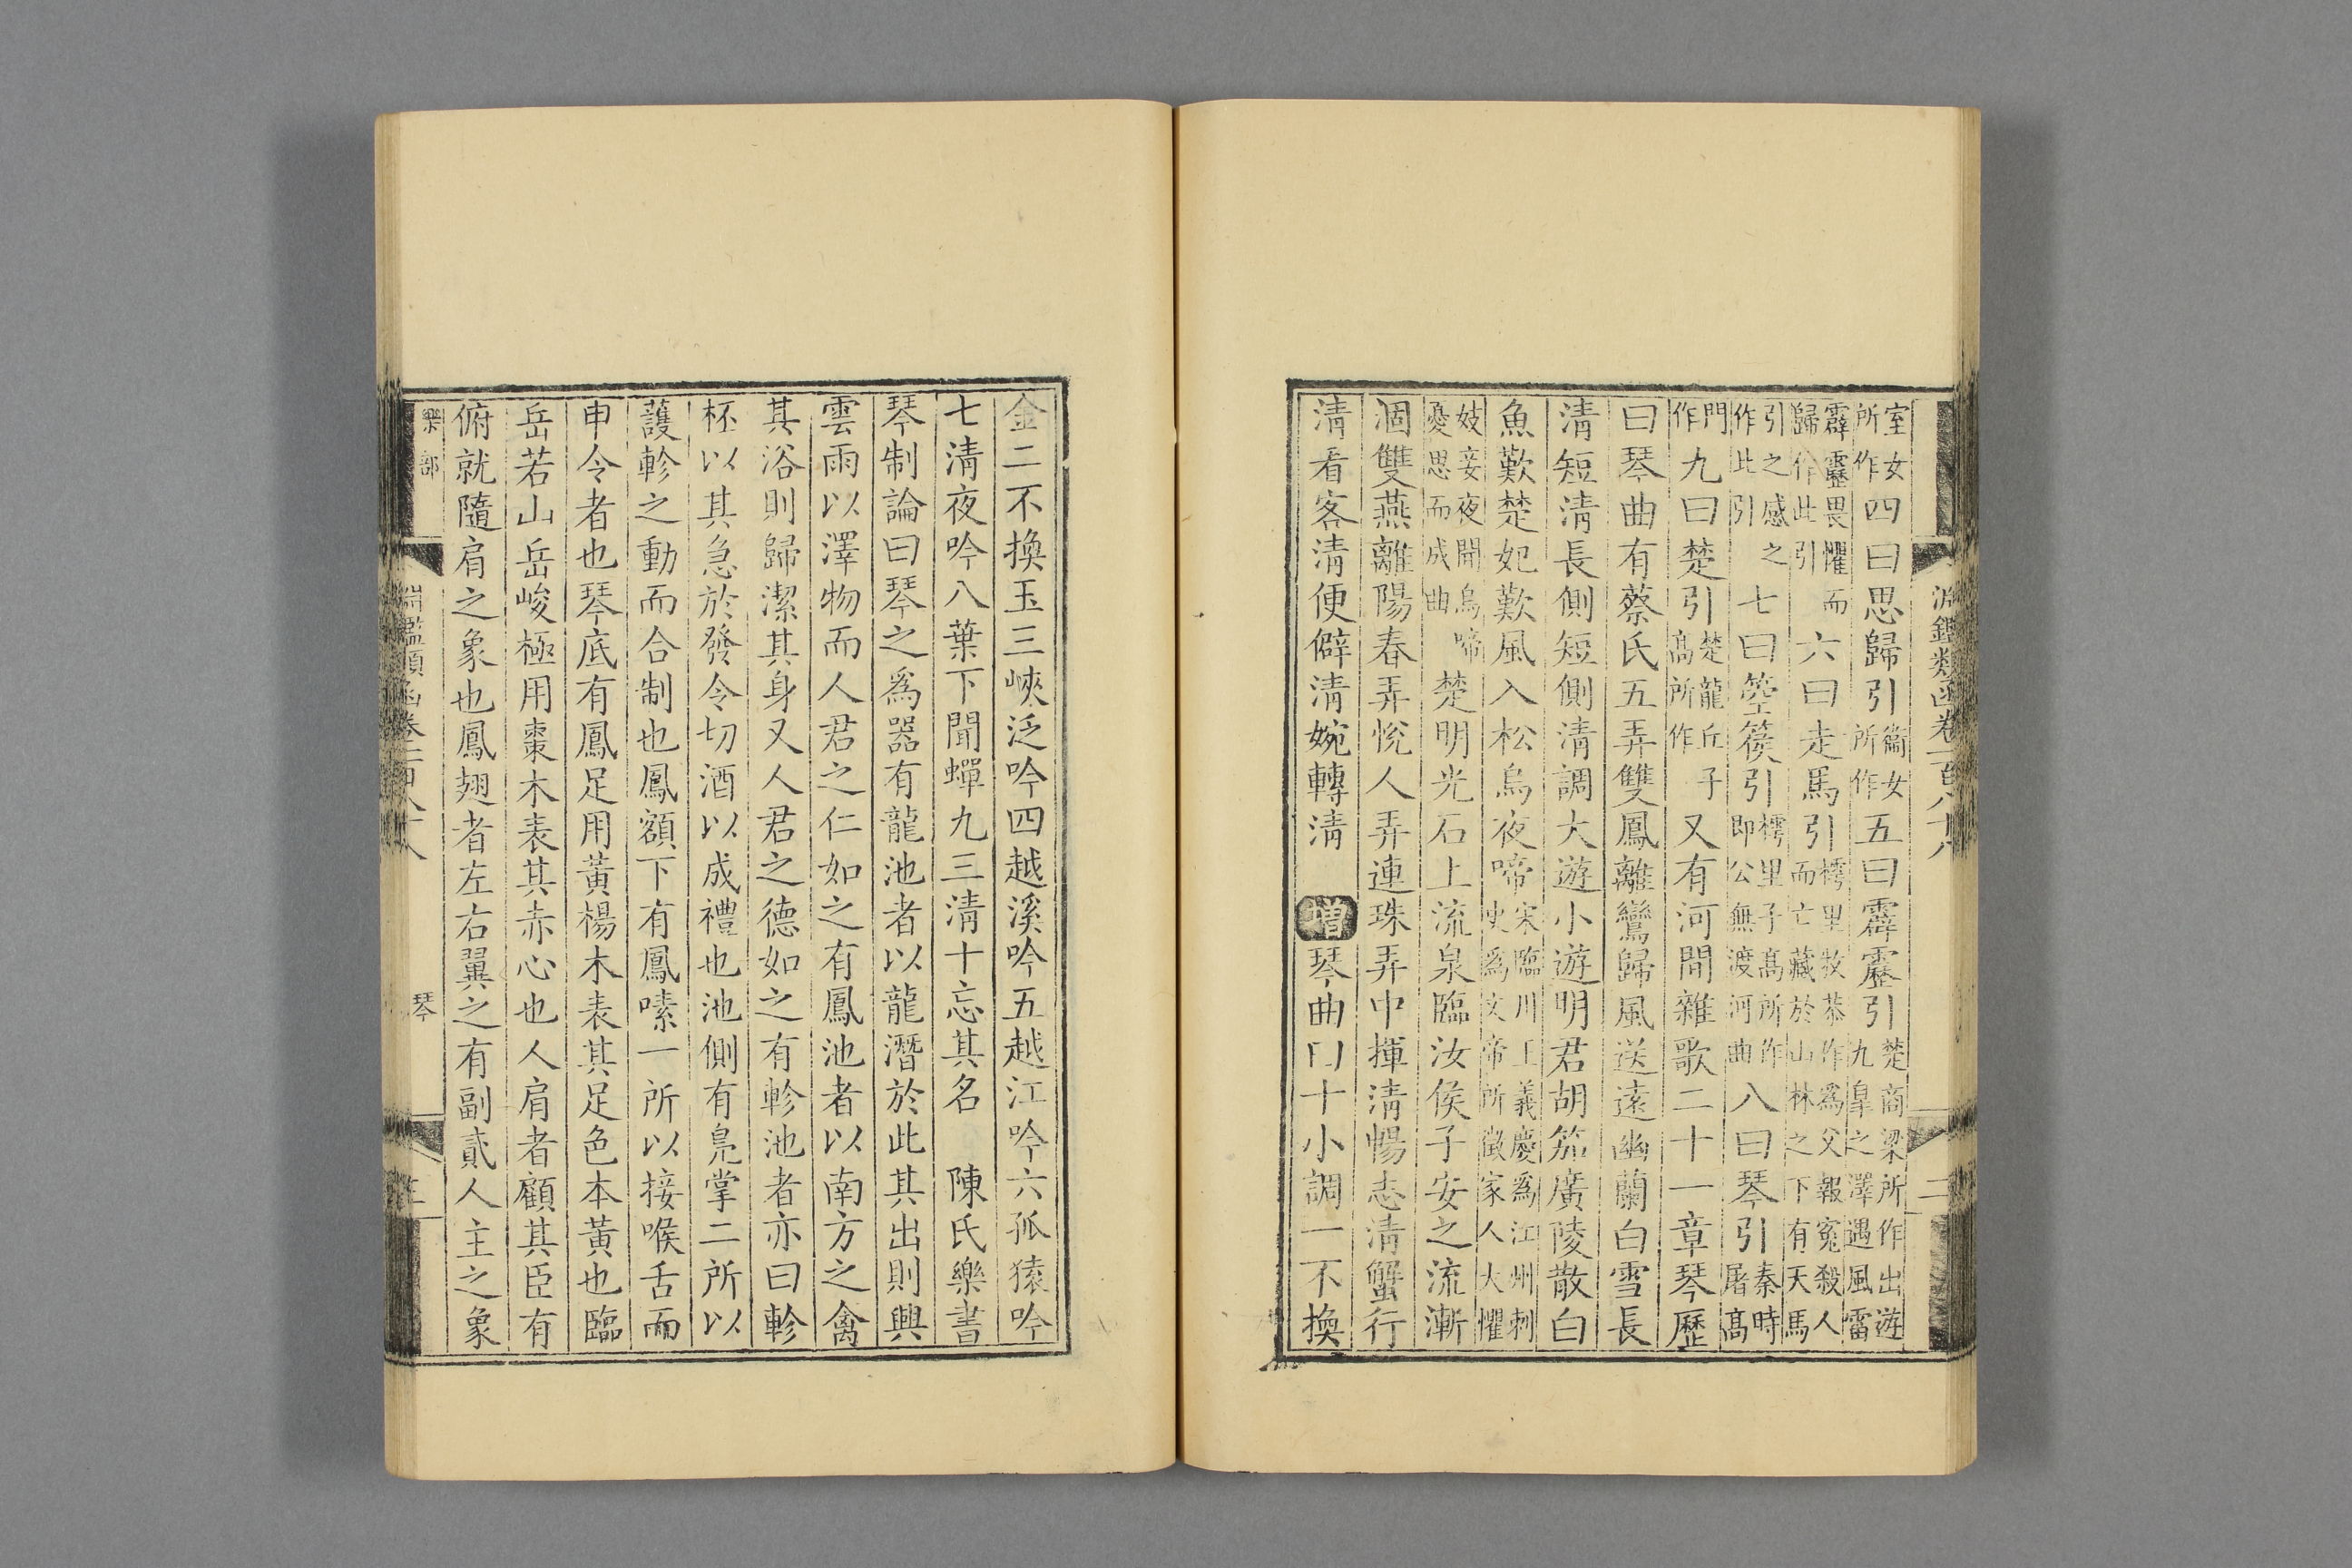 淵鑑類函卷一百八十八 二
室女所作四曰思歸引衞女所作五曰霹靂引楚商梁所作出遊九臯之澤遇風雷
霹靂畏懼而歸作此引六曰走馬引樗里牧恭作爲父報寃殺人而亡藏於山林之下有天馬
引之感之作此引七曰箜篌引樗里子髙所作即公無渡河曲八曰琴引秦時屠髙
門作九曰楚引楚龍丘子髙所作又有河間雜歌二十一章琴歷
曰琴曲有蔡氏五弄雙鳳離鸞歸風送遠幽蘭白雪長
清短清長側短側清調大遊小遊明君胡笳廣陵散白
魚歎楚妃歎風入松烏夜啼宋臨川王義慶爲江州刺史爲文帝所徵家人大懼
妓妾夜聞烏啼憂思而成曲楚明光石上流泉臨汝侯子安之流漸
洄雙燕離陽春弄悅人弄連珠弄中揮清暢志清蟹行
清看客清便僻清婉轉清 增琴曲曰十小調一不換
金二不換玉三峽泛吟四越溪吟五越江吟六孤猿吟
七清夜吟八葉下聞蟬九三清十忘其名 陳氏樂書
琴制論曰琴之爲器有龍池者以龍潛於此其出則興
雲雨以澤物而人君之仁如之有鳳池者以南方之禽
其浴則歸潔其身又人君之德如之有軫池者亦曰軫
杯以其急於發令切酒以成禮也池側有鳧掌二所以
護軫之動而合制也鳳額下有鳳嗉一所以接喉舌而
申令者也琴底有鳳足用黃楊木表其足色本黃也臨
岳若山岳峻極用棗木表其赤心也人肩者顧其臣有
俯就隨肩之象也鳳翅者左右翼之有副貳人主之象
樂部 琴